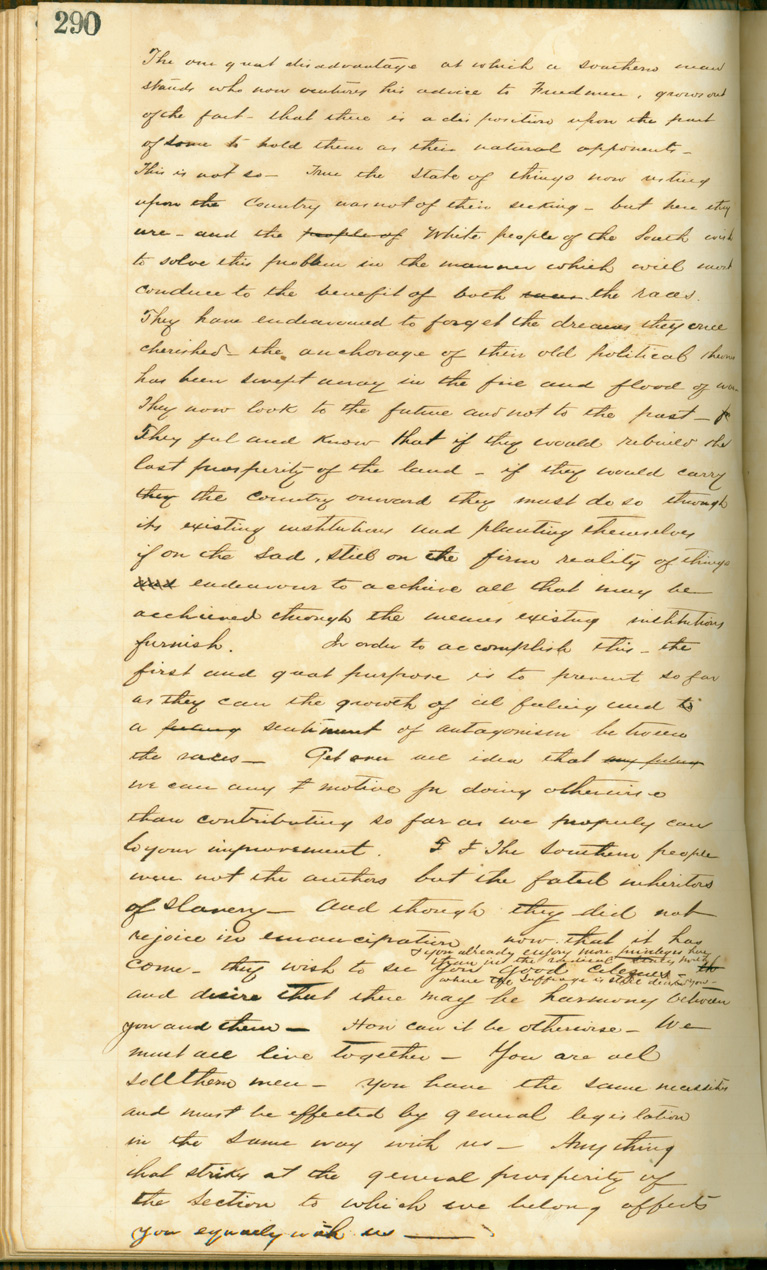 290
The one great disadvantage at which a southern man
stands who now ventures his advice to Freedmen, grows out
of the fact - that there is a disposition upon the part
of some to hold them as their natural opponents -
This is not so - True the state of things now resting
upon the Country was not of their seeking - but here they
are - and the people of White people of the South wish
to solve this problem in the manner which will most
conduce to the benefit of both races the races.
They have endeavoured to forget the dreams they once
cherished - the anchorage of their old political
has been swept away in the fire and flood of war -
They now look to the future and not to the past -
They feel and know that if they would rebuild the
lost prosperity of the land - if they would carry
they the country onward they must do so through
its existing institutions and planting themselves
if on the sad, still on the firm reality of things
and endeavour to acchieve all that may be
acchieved through the means existing institutions
furnish. In order to accomplish this - the
first and great purpose is to prevent so far
as they can the growth of ill feeling and to
a feeling sentiment of antagonism between
the races - Get over all idea that any future
we can any motive for doing otherwise
than contributing so far as we properly can
to your improvement. The Southern people
were not the authors but the fated inheritors
of slavery - And though they did not
rejoice in emancipation now that it has
& you already enjoy more privileges here
than in the
where the suffrage is still denied you -
come - they wish to see you good citizens -
and desire that there may be harmony between
you and them - How can it be otherwise - We
must all live together - You are all
Southern men - You have the same necessities
and must be effected by general legislation
in the same way with us - Any thing
that strikes at the general prosperity of
the section to which we belong affects
you equally with us -